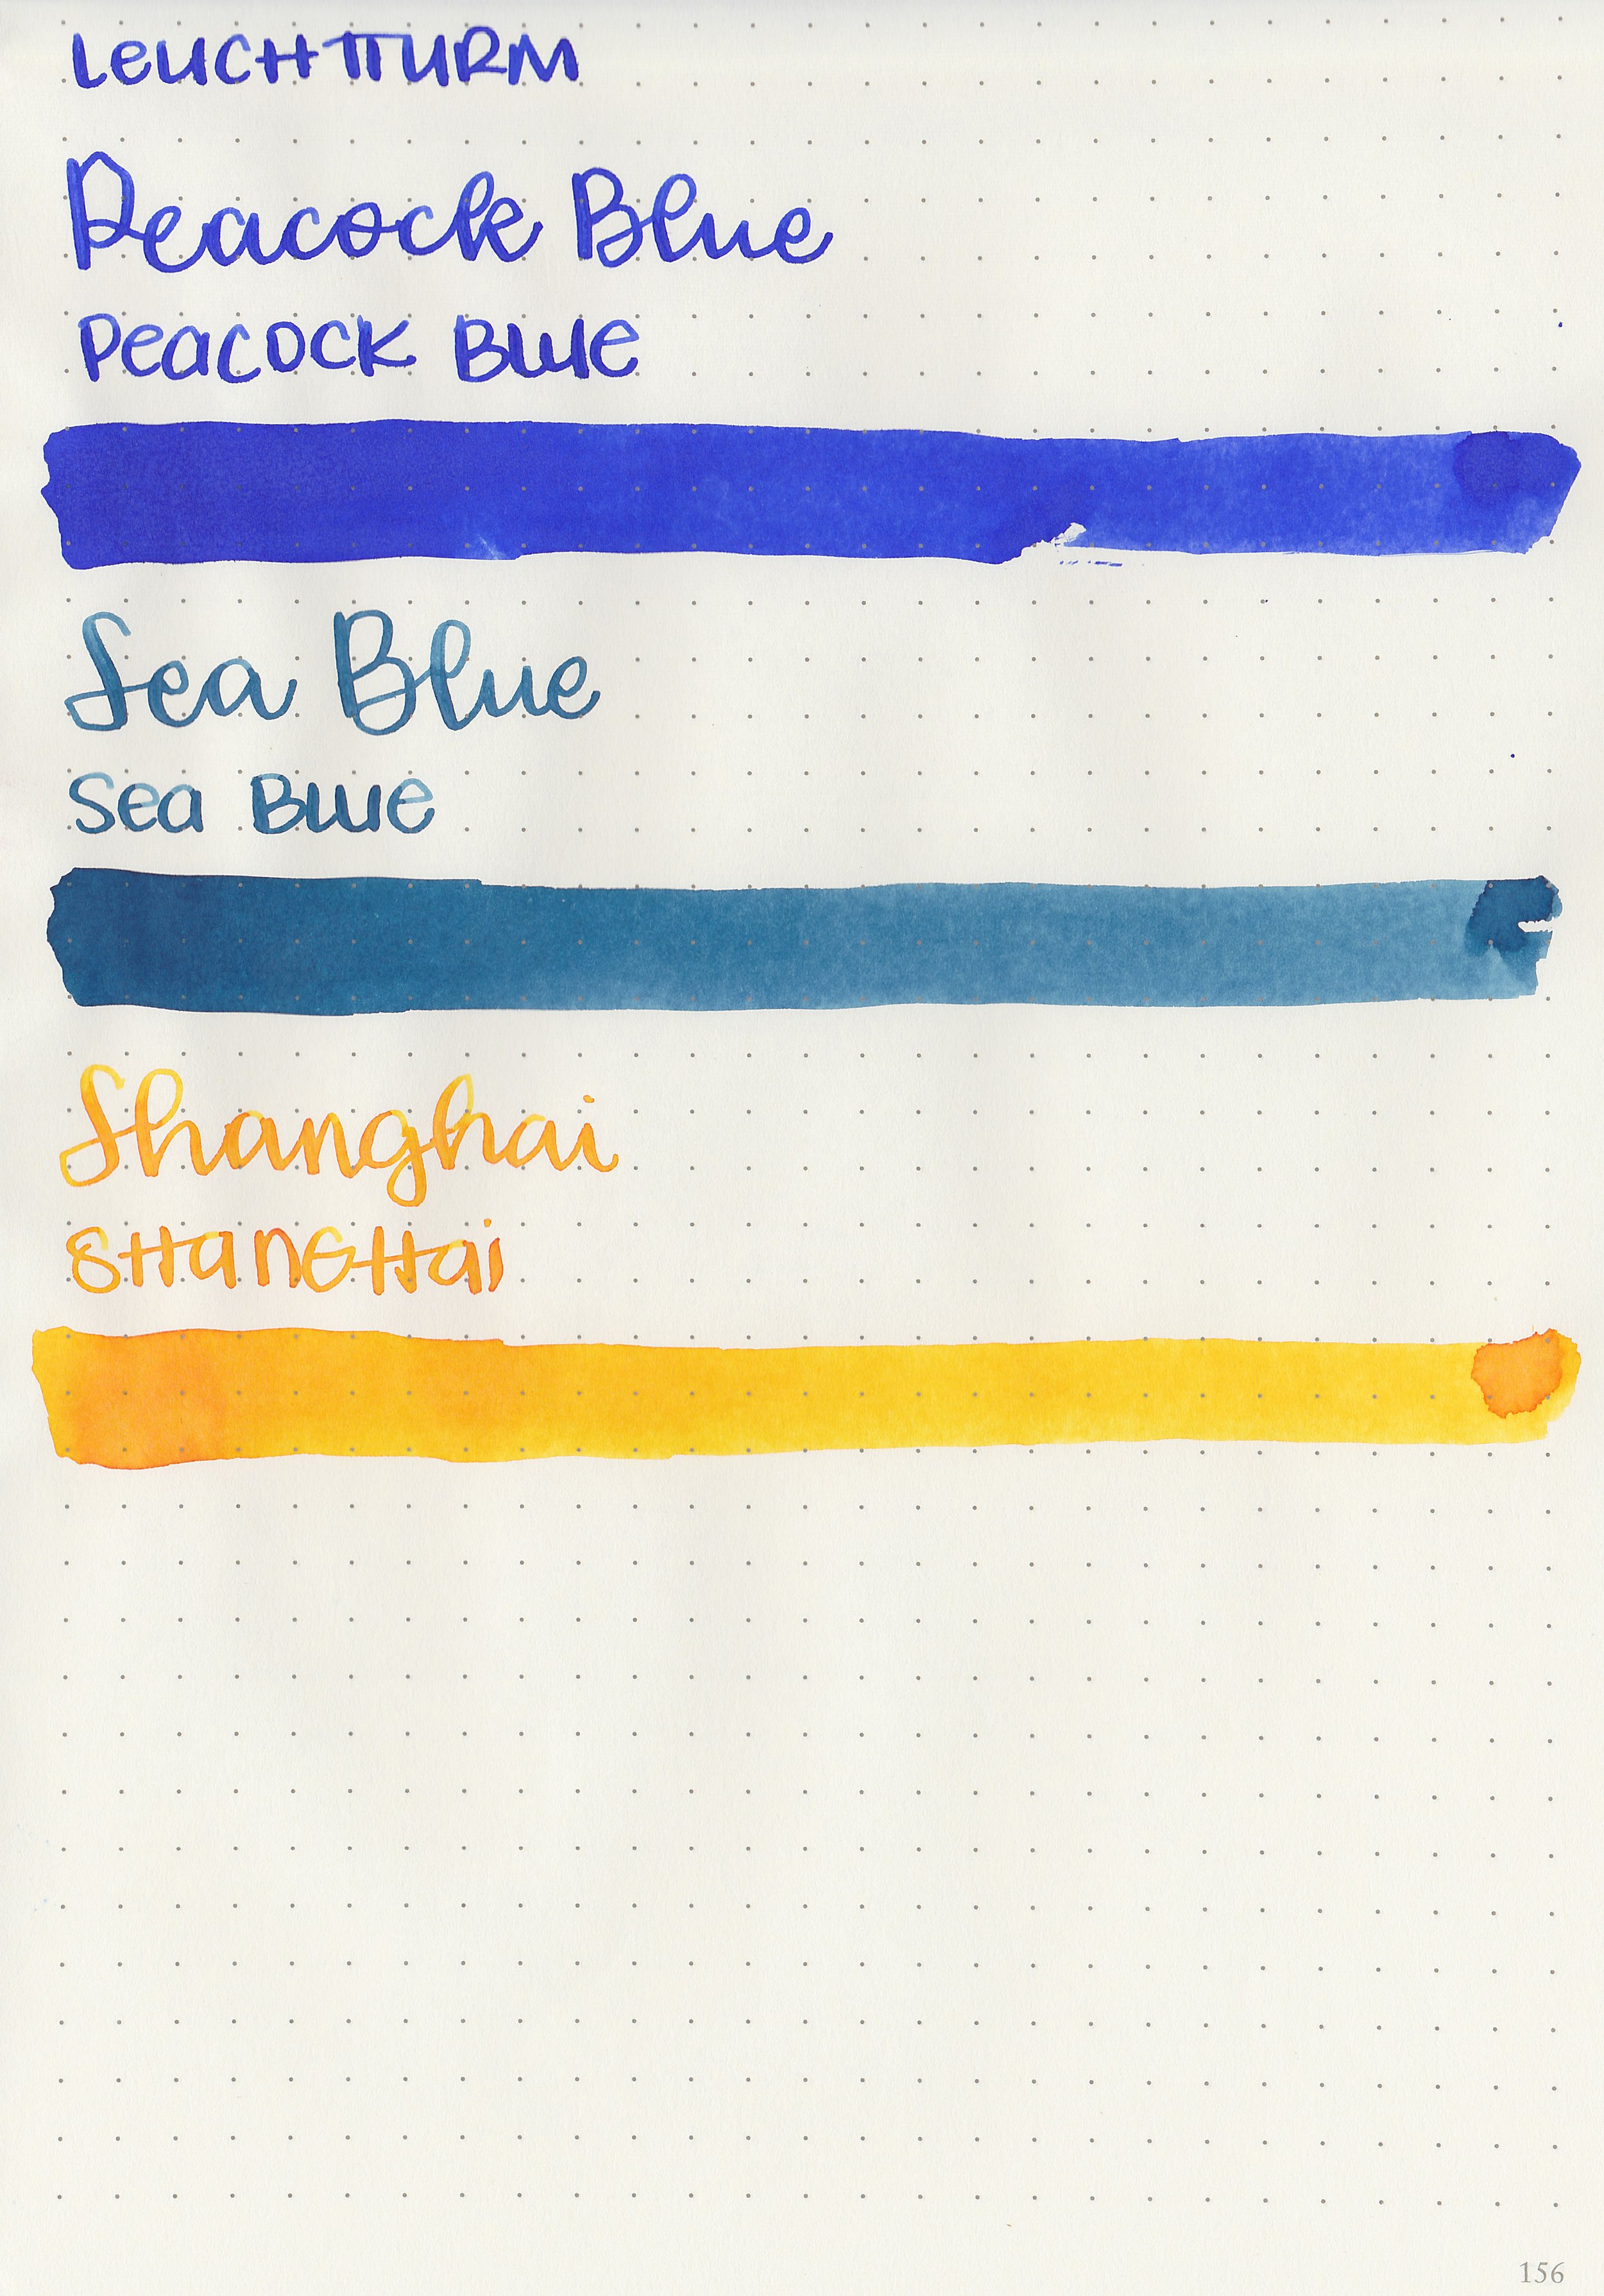 LEUCHTTURM
Peacock Blue
Peacock Blue
Sea Blue
Sea Blue
Shanghai
SHanGHai
156